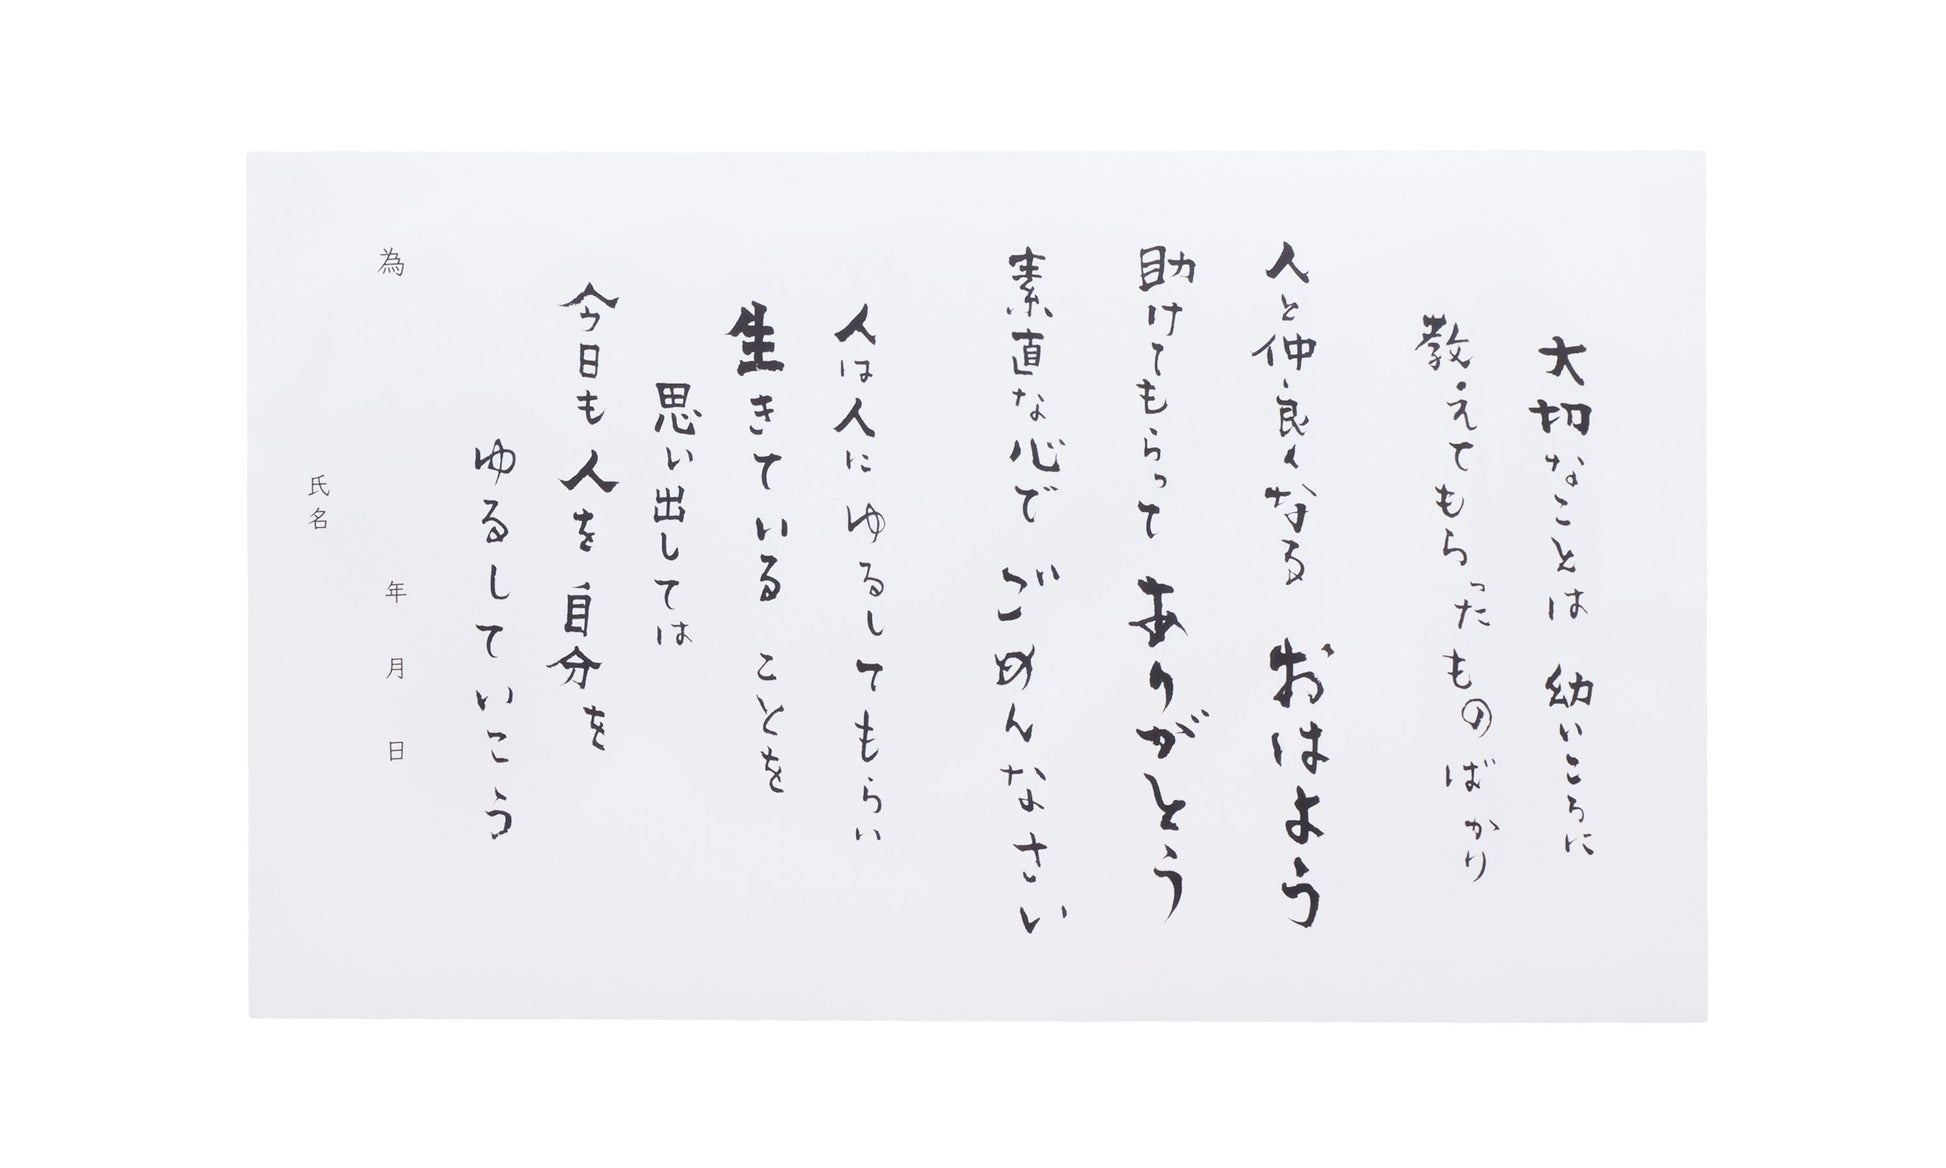 大切なことは 幼いころに
教えてもらったものばかり
人と仲良くなる おはよう
助けてもらって ありがとう
素直な心で ごめんなさい
人は人にゆるしてもらい
生きている ことを
思い出しては
今日も人を 自分を
ゆるしていこう
為
年 月 日
氏名